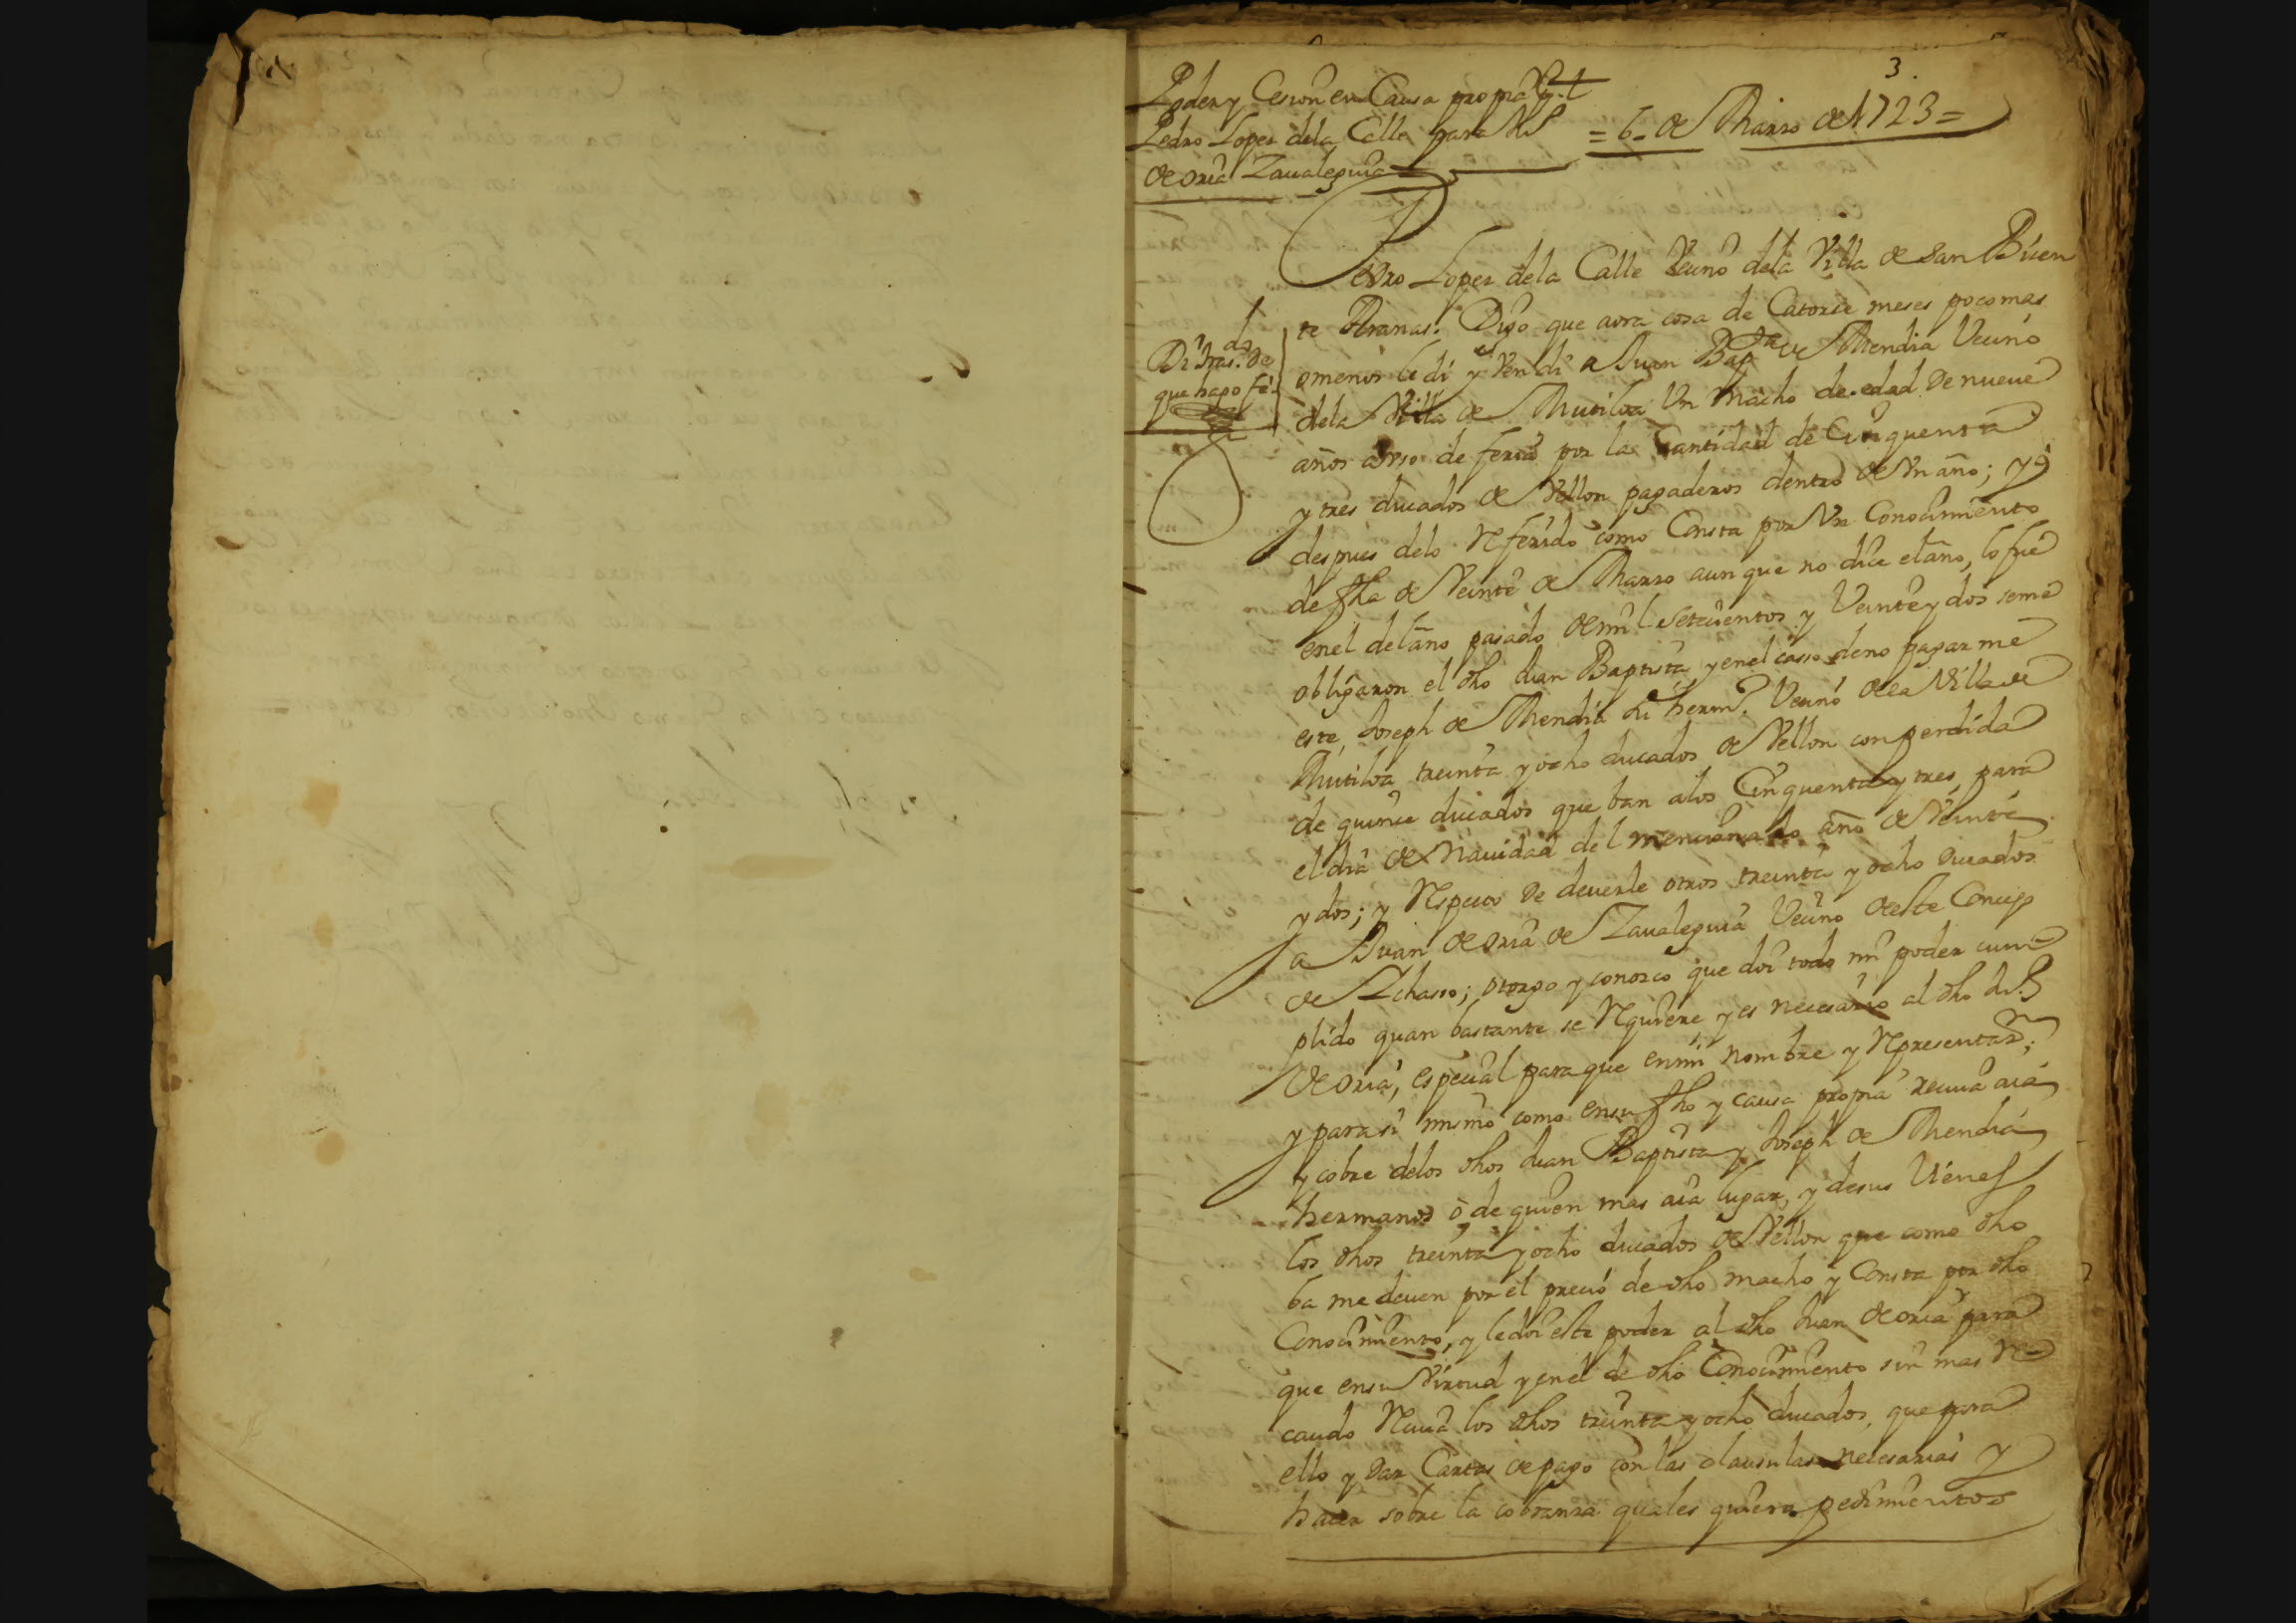 3.
Poder y Cesion en Causa propia
Pedro Lopez dela Calle para
de oria Zaualeguia
= 6- de Marzo de 1723 =
Pedro Lopez dela Calle Vecino dela Villa de San Vicen
te Aranas. Digo que aora cosa de Catorce meses poco mas
o menos le di y Vendi a Juan Bapta de Mendia Vecino
dela Villa de Mutiloa Un Macho de edad De nueue
años a Vso de feria por la Cantidad de Cinquenta
y tres ducados de Vellon pagaderos dentro de Vn año; y q
despues delo Referido como Consta por Vn Conocimiento
de fha de Veinte de Marzo aun que no dice el año, lo fue
en el del año pasado de mil Setecientos y Veinte y dos seme
obligaron el dho Juan Baptista y en el casso de no pagar me
este, Joseph de Mendia su herm.o Vecino de la Villa de
Mutiloa treinta y ocho ducados de Vellon con perdida
de quince ducados que ban a los Cinquenta y tres para
el dia de Nauidad del mencionado año de Veinte
y dos; y Respecto De deuerle otros treinta y ocho Ducados
a Juan de oria de Zaualeguia Vecino de este Concejo
de Ichasso; otorgo y conozco que doi todo mi poder cum-
plido quan bastante se Requiere y es necesario al dho Ju.o
de oria, especial para que en mi nombre y Representaz.on;
y para si mismo como en su fho y causa propia reciua aia
y cobre delos dhos Juan Baptista y Joseph de Mendia
hermanos ò de quien mas aia lugar, y de sus Vienes
los dhos treinta y ocho ducados de Vellon que como dho
ba me deuen por el precio de dho macho y Consta por dho
Conocimiento, y le doi este poder al dho Juan de oria para
que en su Virtud y en el de dho Conocimiento sin mas Re-
caudo Reciua los dhos treinta y ocho ducados, que para
ello y Dar Cartas de pago con las clausulas necesarias y
hacer sobre la cobranza quales quiera pedimientos
Di tras.do De
que hago fe-